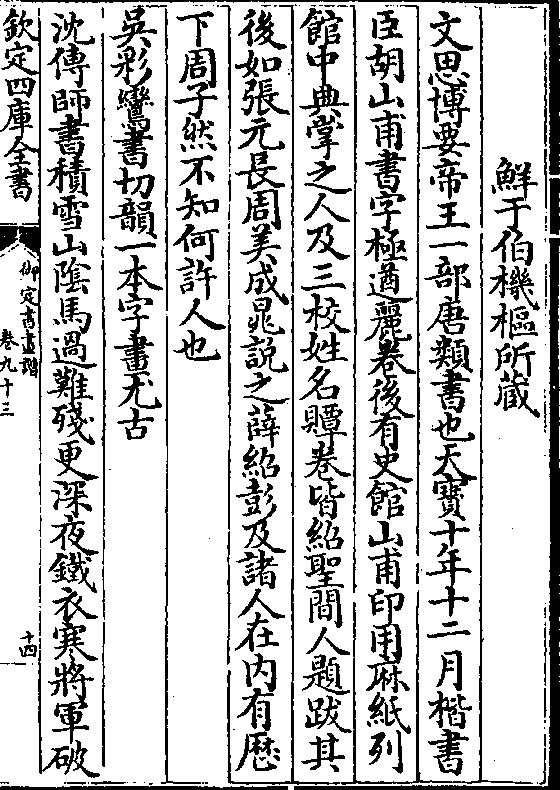 鮮于伯機樞所藏
文思博要帝王一部唐類書也天寶十年十二月楷書
臣胡山甫書字極遒麗卷後有史館山甫印用麻紙列
館中典掌之人及三校姓名贉卷皆紹聖間人題跋其
後如張元長周美成晁説之薛紹彭及諸人在内有厯
下周子然不知何許人也
吳彩鸞書切韻一本字畫尤古
沈傳師書積雪山陰馬過難殘更深夜鐵衣寒將軍破
欽定四庫全書
御定書畫譜
卷九十三
十四